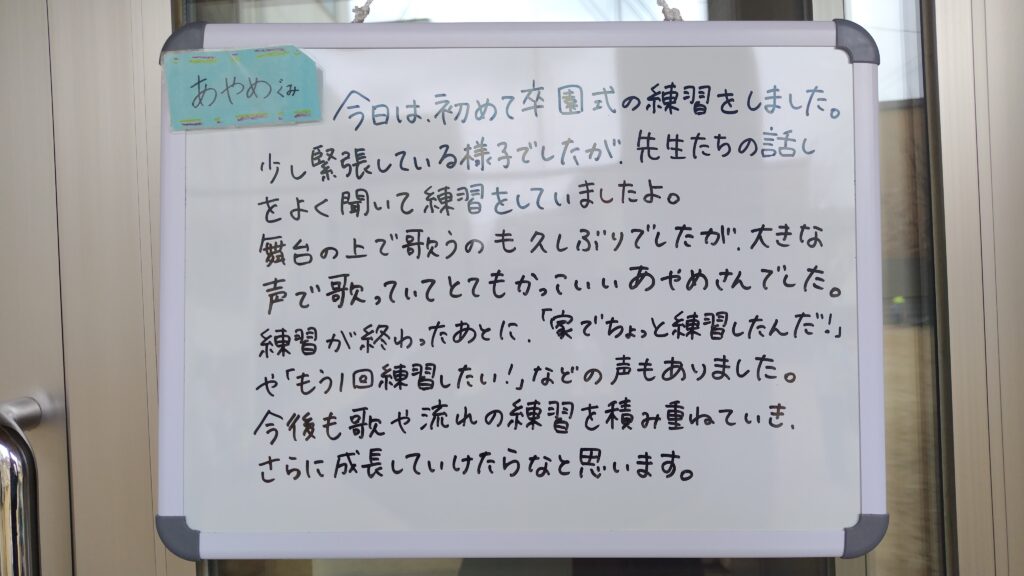 あやめぐみ
今日は、初めて卒園式の練習をしました。
少し緊張している様子でしたが、先生たちの話し
をよく聞いて練習をしていましたよ。
舞台の上で歌うのも久しぶりでしたが、大きな
声で歌っていてとてもかっこいいあやめさんでした。
練習が終わったあとに、「家でちょっと練習したんだ!」
や「もう1回練習したい!」などの声もありました。
今後も歌や流れの練習を積み重ねていき、
さらに成長していけたらなと思います。